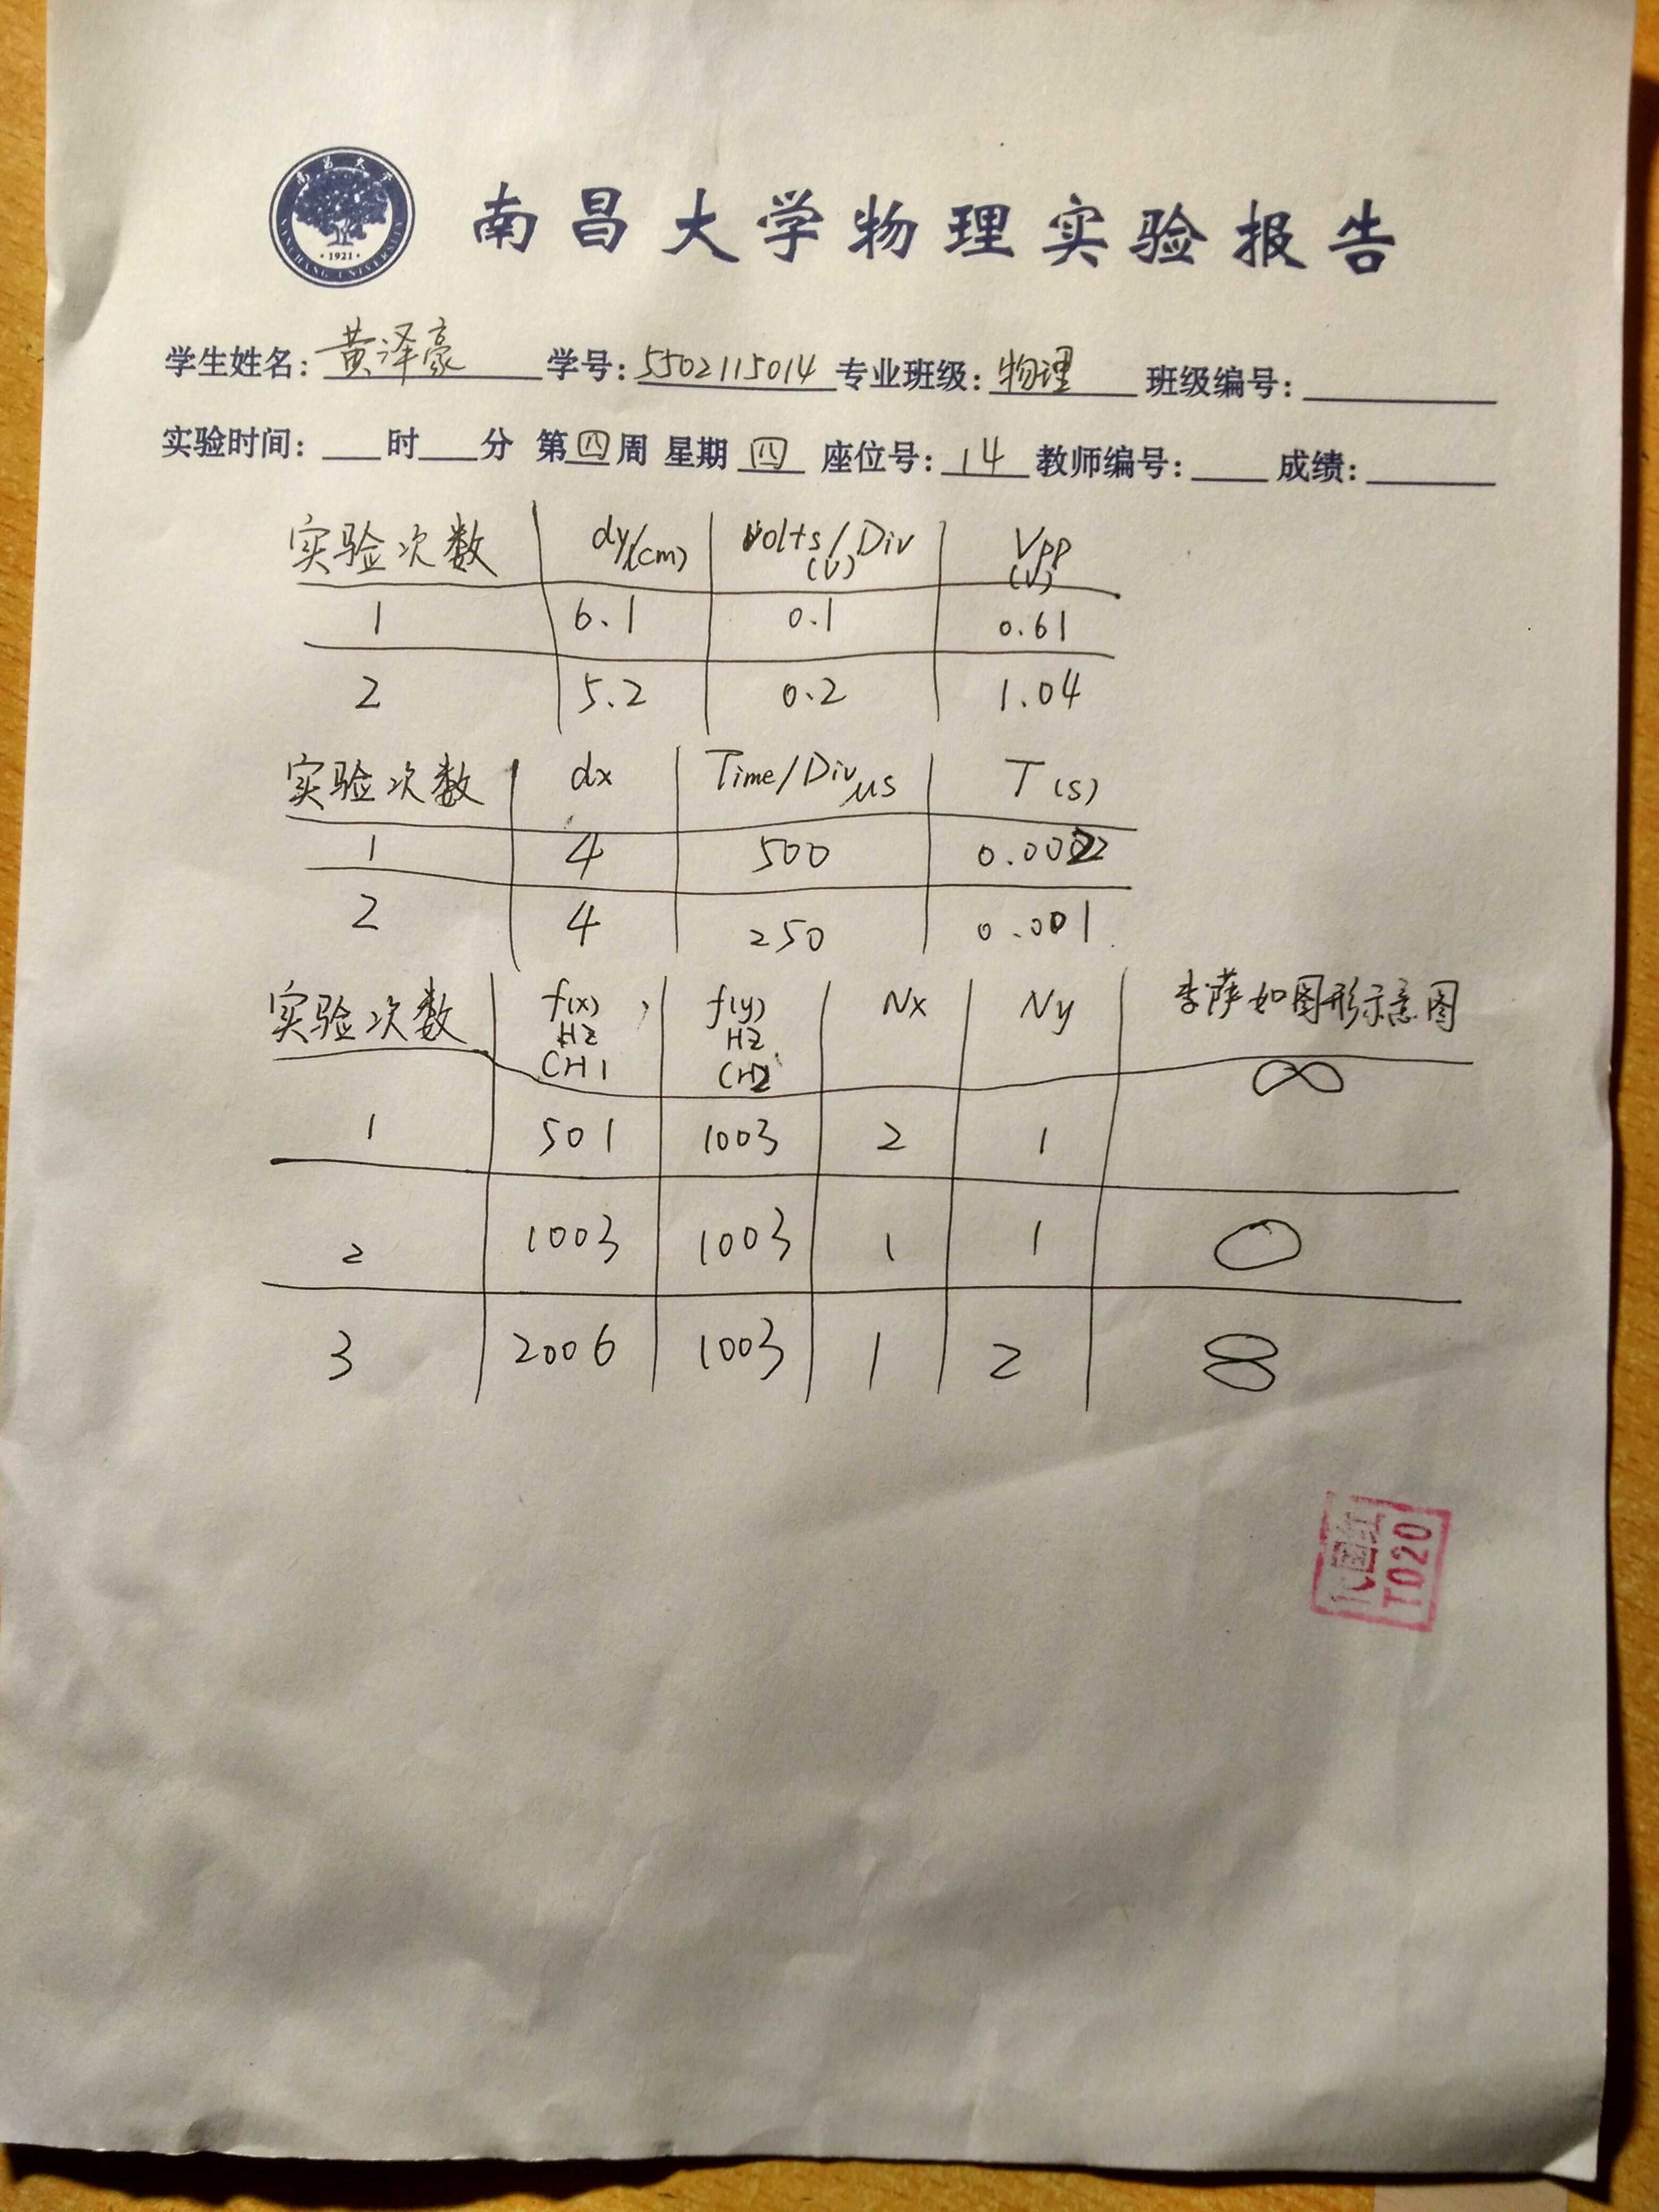 南昌大学
NANCHANG UNIVERSITY
·1921·
南昌大学物理实验报告
学生姓名: 黄泽豪 学号: 5502115014 专业班级: 物理 班级编号:
实验时间: 时 分 第四周 星期四 座位号: 14 教师编号: 成绩:
实验次数 dy/(cm) Volts/Div (V) Vpp (V)
1 6.1 0.1 0.61
2 5.2 0.2 1.04
实验次数 dx Time/Div μs T(s)
1 4 500 0.002
2 4 250 0.001
实验次数 f(x) HZ CH1 f(y) HZ CH2 Nx Ny 李萨如图形示意图
1 501 1003 2 1
2 1003 1003 1 1
3 2006 1003 1 2
T020